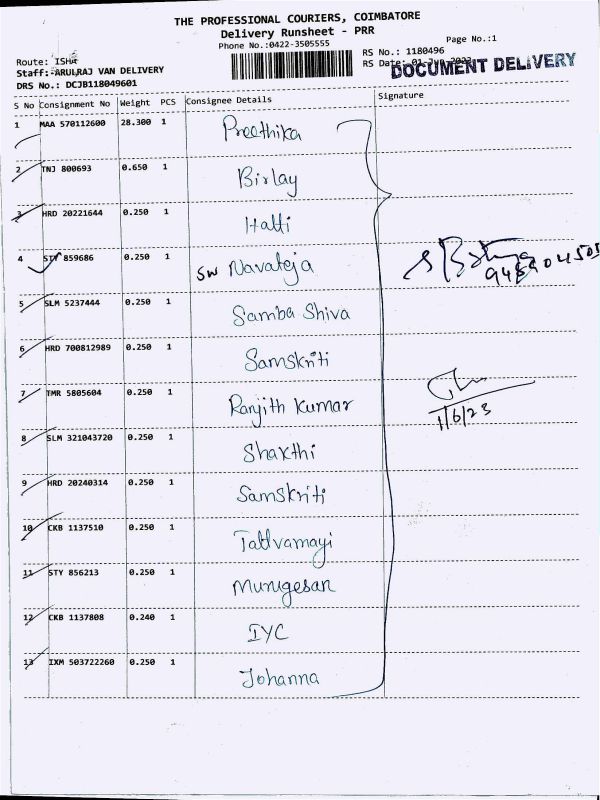 THE PROFESSIONAL COURIERS, COIMBATORE
Delivery Runsheet - PRR
Phone No.:0422-3505555
Page No.:1
Route: ISHA
RS No.: 1180496
Staff:-ARULRAJ VAN DELIVERY
RS Date: 01-Jun-2023
DOCUMENT DELIVERY
DRS No.: DCJB118049601
S No Consignment No Weight PCS Consignee Details Signature
1 MAA 570112600 28.300 1 Preethika
2 TNJ 800693 0.650 1 Birlay
3 HRD 20221644 0.250 1 Hatti
4 STY 859686 0.250 1 SW Navateja
5 SLM 5237444 0.250 1 Samba Shiva
6 HRD 700812989 0.250 1 Samskriti
7 TMR 5805604 0.250 1 Ranjith Kumar
1/6/23
8 SLM 321043720 0.250 1 Shakthi
9 HRD 20240314 0.250 1 Samskriti
10 CKB 1137510 0.250 1 Tattvamayi
11 STY 856213 0.250 1 Murugesan
12 CKB 1137808 0.240 1 IYC
13 IXM 503722260 0.250 1 Johanna